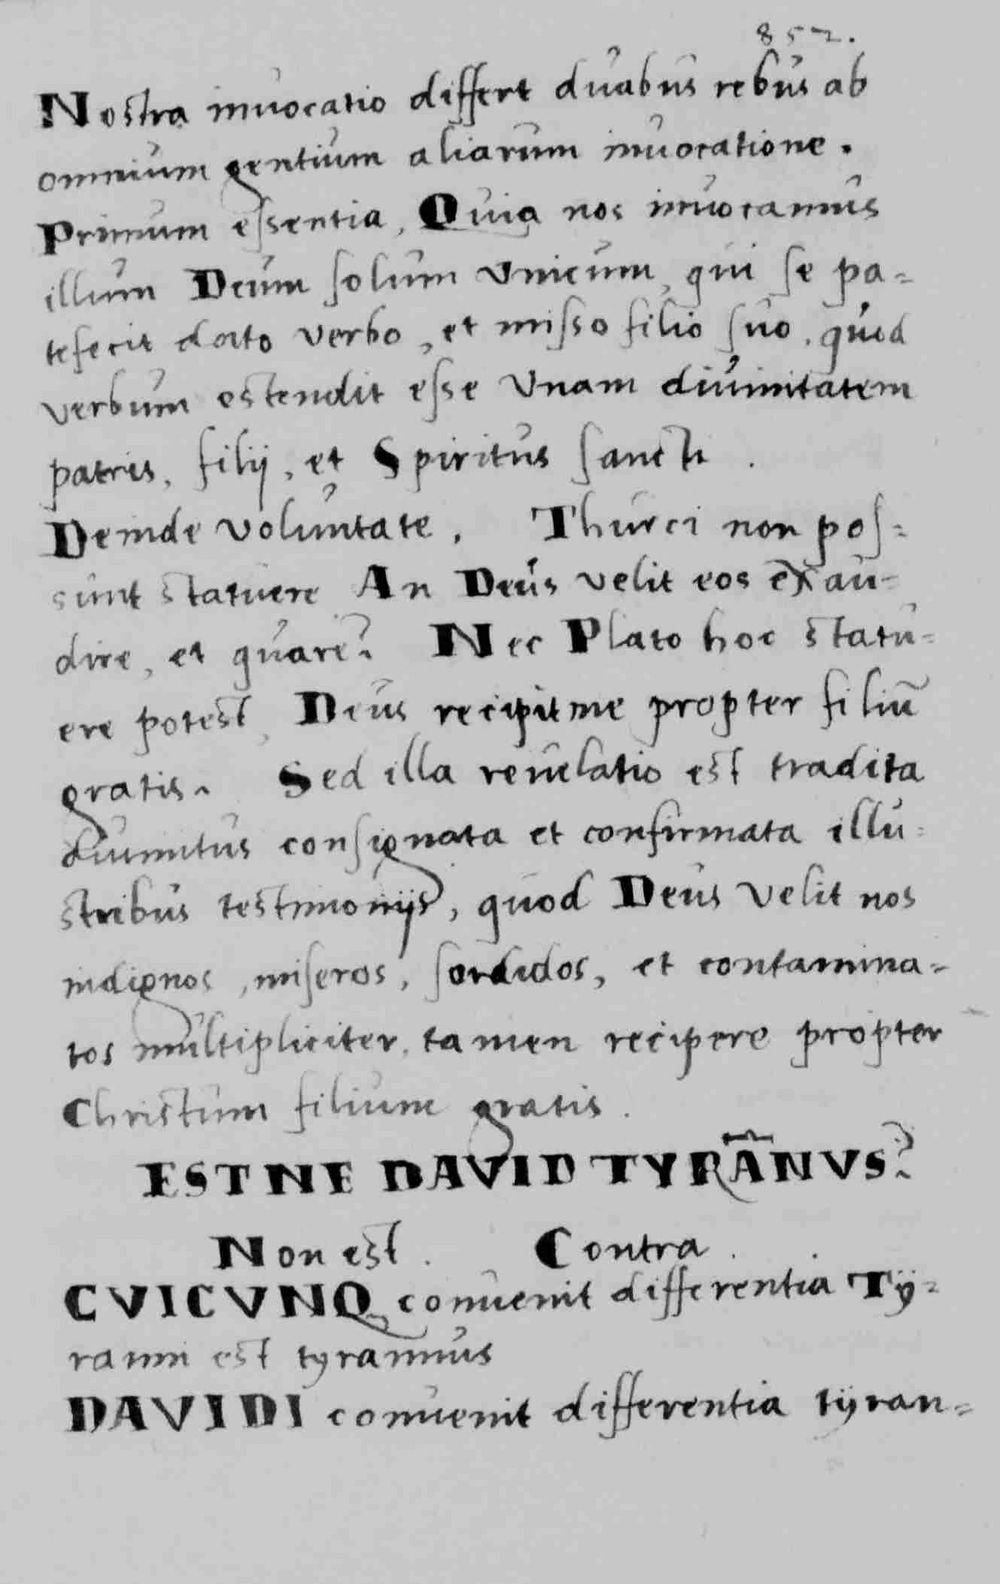 852.
Nostra inuocatio differt duabus rebus ab
omnium gentium aliarum inuocatione.
Primum essentia, Quia nos inuocamus
illum Deum solum vnicum, qui se pa-
tefecit dato verbo, et misso filio suo, quod
verbum ostendit esse vnam diuinitatem
patris, filij, et Spiritus sancti.
Deinde voluntate. Thurci non pos-
sunt statuere An Deus velit eos exau-
dire, et quare? Nec Plato hoc statu-
ere potest, Deus recipit me propter filiū
gratis. Sed illa reuelatio est tradita
diuinitus consignata et confirmata illu-
stribus testimonijs, quod Deus velit nos
indignos, miseros, sordidos, et contamina-
tos multipliciter, tamen recipere propter
Christum filium gratis.
ESTNE DAVID TYRANVS?
Non est. Contra.
CVICVNQ conuenit differentia Tÿ-
ranni est tyrannus
DAVIDI conuenit differentia tÿran-